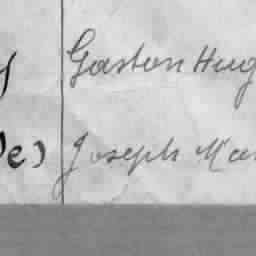 Gaston Hug
e) Joseph Mar